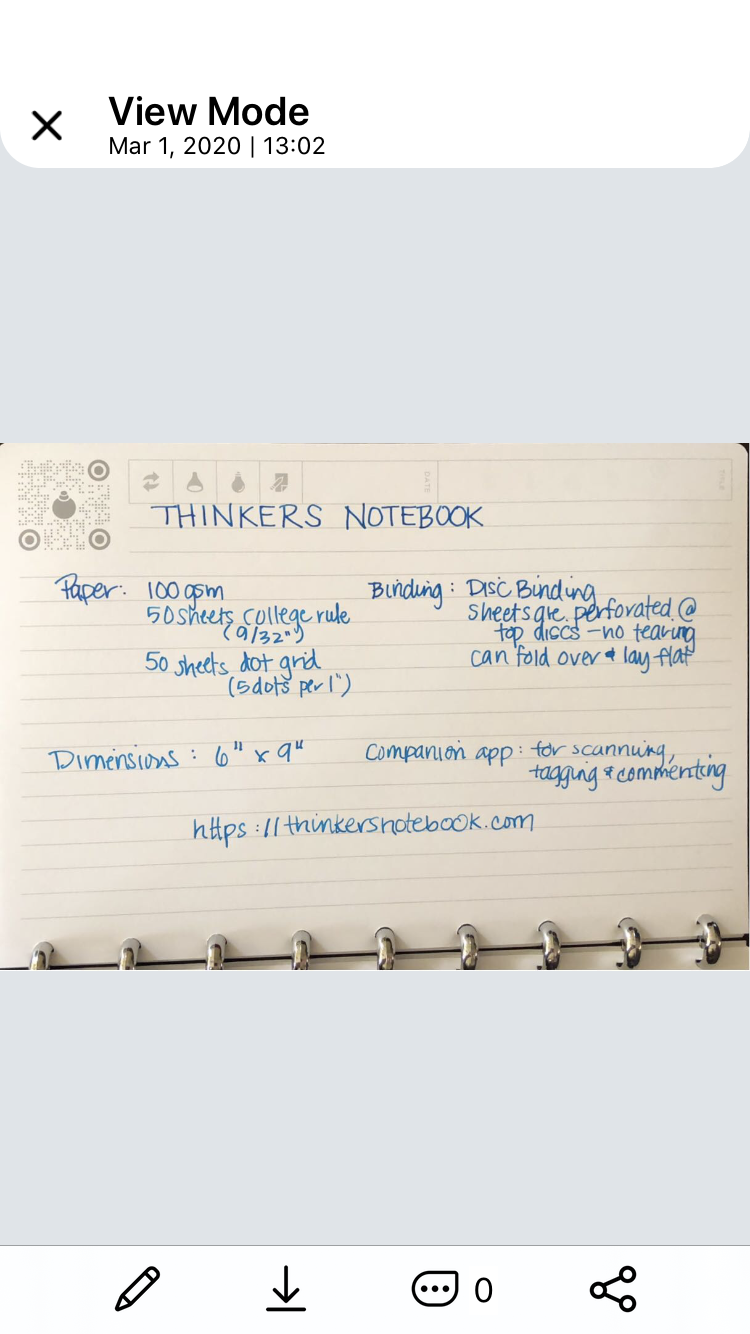 View Mode
Mar 1, 2020 | 13:02
DATE
TITLE
THINKERS NOTEBOOK
Paper: 100 gsm
50 sheets college rule
(9/32")
50 sheets dot grid
(5 dots per 1")
Binding: Disc Binding
sheets are perforated @
top discs - no tearing
can fold over & lay flat
Dimensions: 6" x 9"
Companion app: for scanning,
tagging & commenting
https://thinkersnotebook.com
0